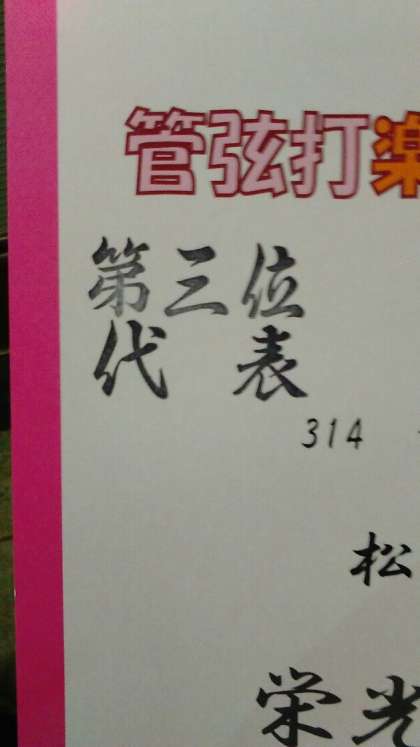 管弦打楽
第三位
代 表
314
松
栄光